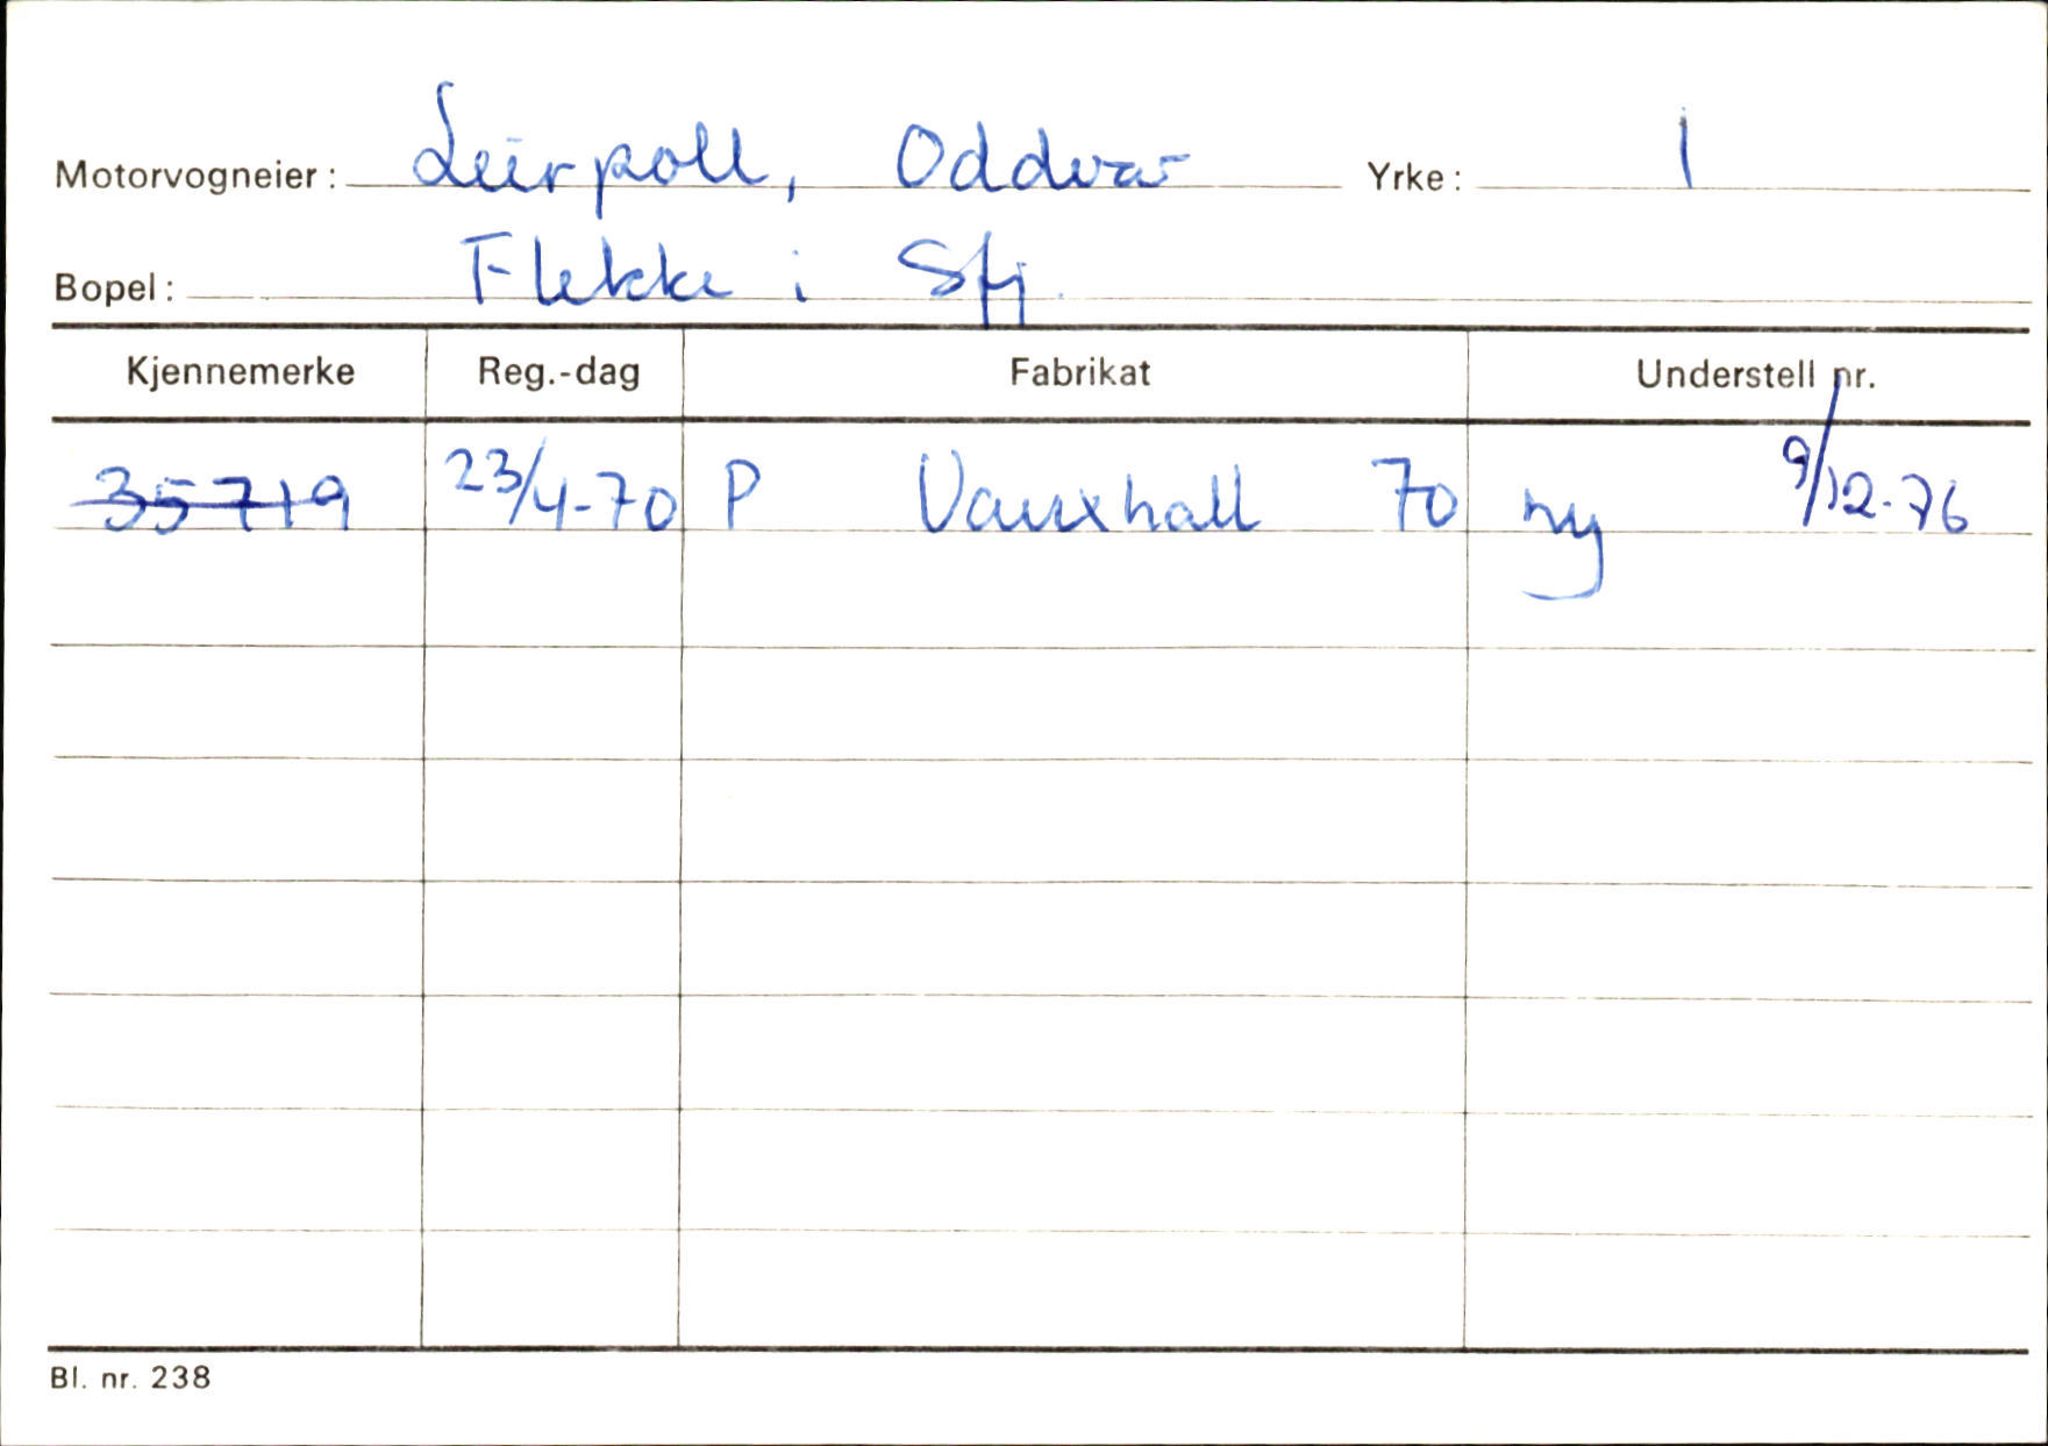 Motorvogneier: Leirpoll, Oddvar Yrke: 1
Bopel: Flekke i Sfj.
Kjennemerke Reg.-dag Fabrikat Understell nr.
35719 23/4-70 P Vauxhall 70 ny 9/12-76
Bl. nr. 238